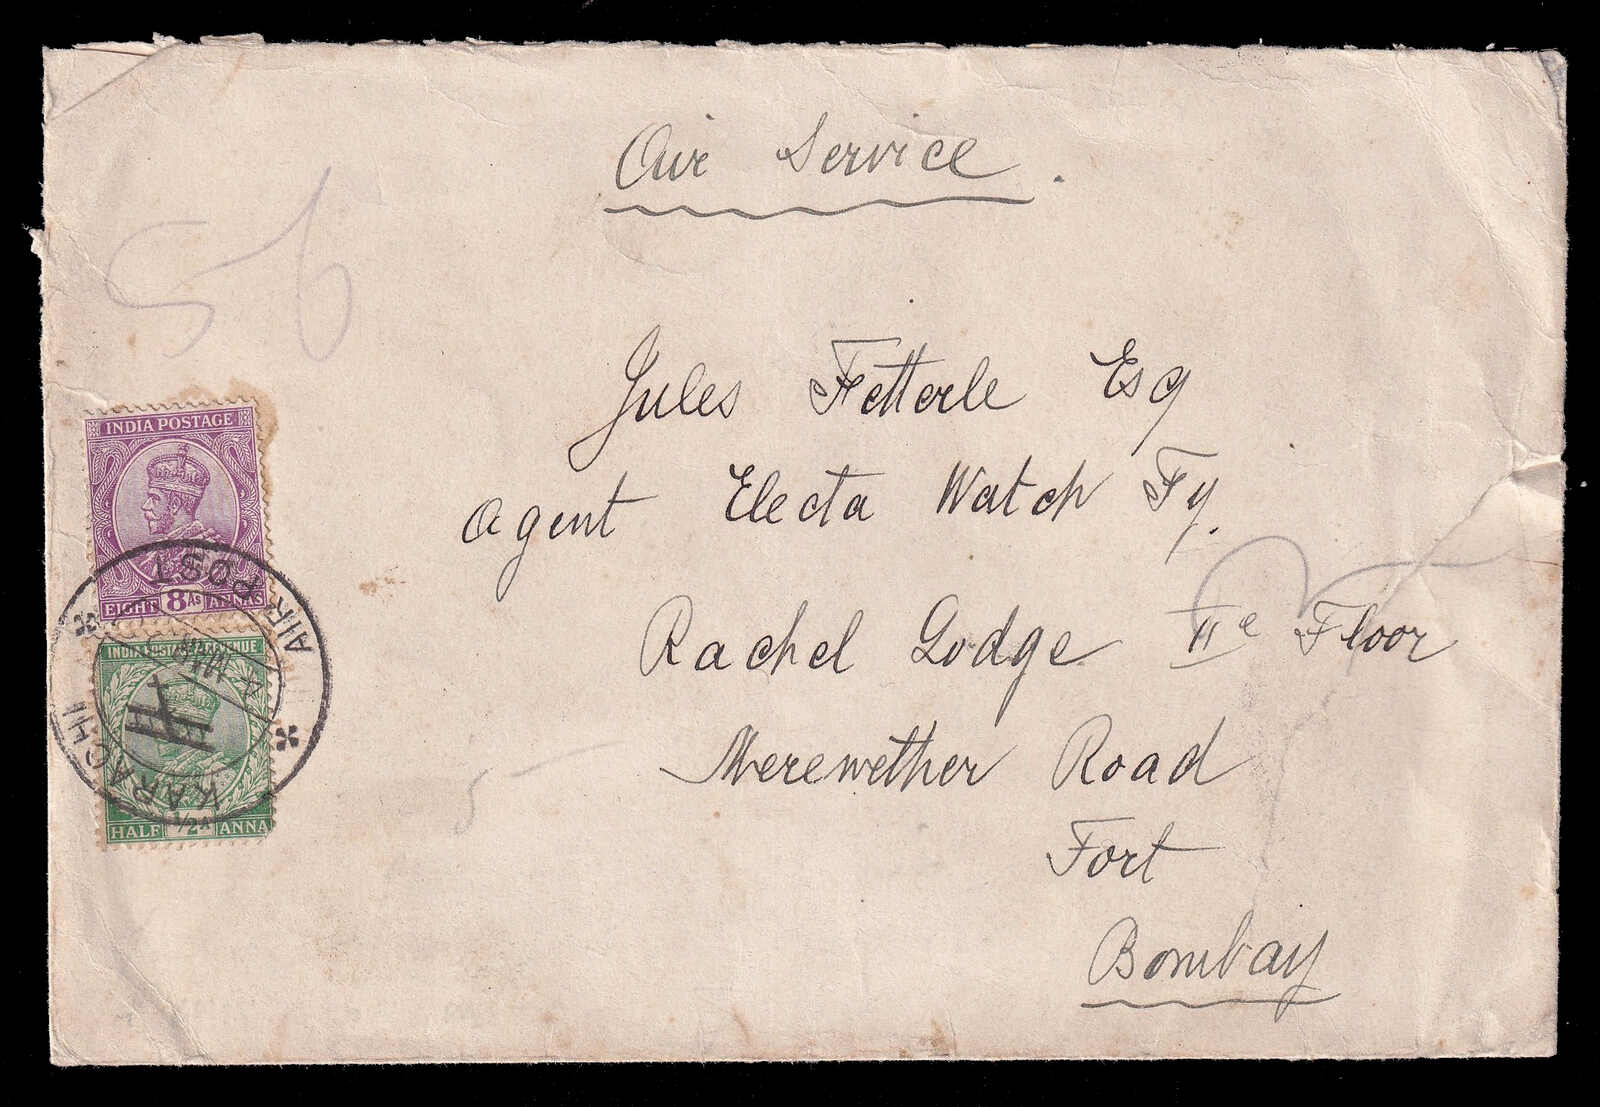 Air Service.
56
Jules Fetterle Esq
Agent Electa Watch Fy.
Rachel Lodge IIe Floor
Merewether Road
Fort
Bombay
INDIA POSTAGE
EIGHT 8 As ANNAS
INDIA POSTAGE & REVENUE
HALF 1/2 A ANNA
KARACHI AIR POST
4 MAR
5